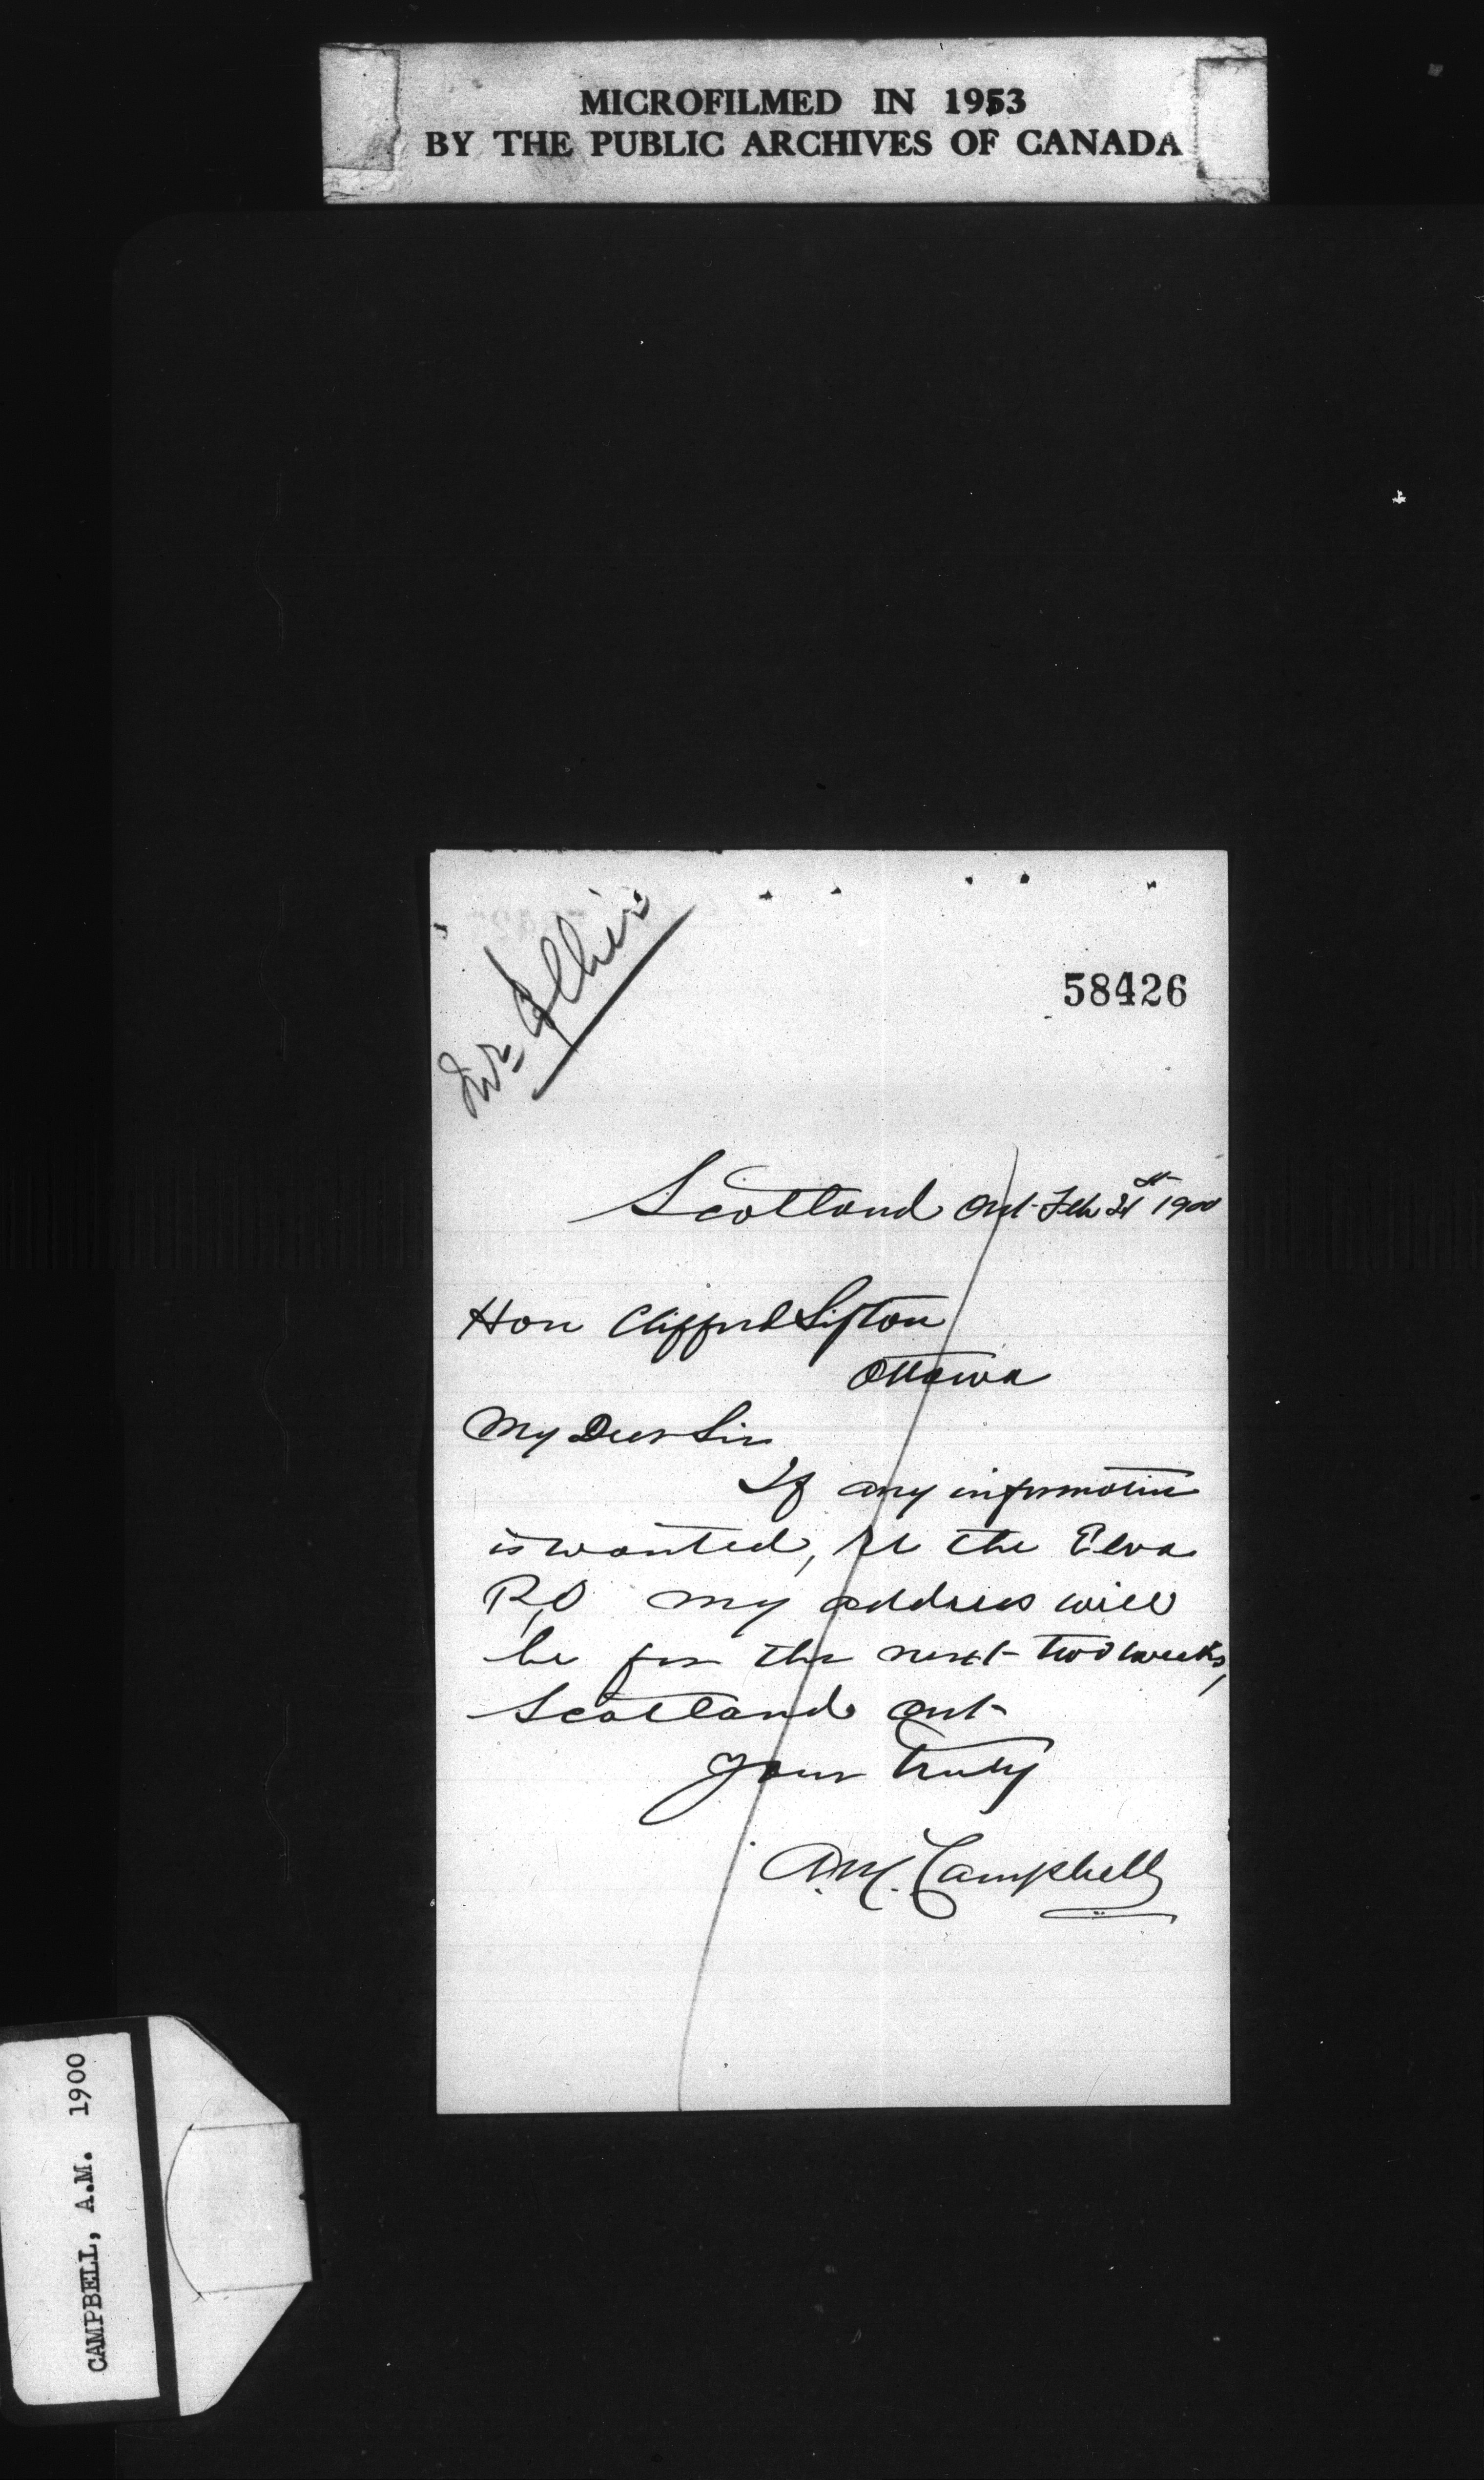 MICROFILMED IN 1953
BY THE PUBLIC ARCHIVES OF CANADA
58426
Scotland Ont Feb 21st 1900
Hon Clifford Sifton
Ottawa
My Dear Sir
If any information
is wanted, re the Elva
P,O my address will
be for the next two weeks,
Scotland Ont
Your Truly
A.M. Campbell
CAMPBELL, A.M. 1900